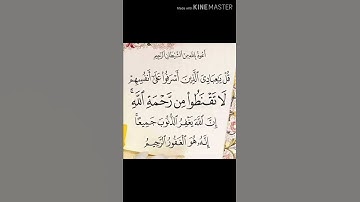 Made with KINEMASTER
أعوذ بالله من الشيطان الرجيم
قُلْ يَٰعِبَادِىَ ٱلَّذِينَ أَسْرَفُوا۟ عَلَىٰٓ أَنفُسِهِمْ
لَا تَقْنَطُوا۟ مِن رَّحْمَةِ ٱللَّهِ ۚ
إِنَّ ٱللَّهَ يَغْفِرُ ٱلذُّنُوبَ جَمِيعًا ۚ
إِنَّهُۥ هُوَ ٱلْغَفُورُ ٱلرَّحِيمُ